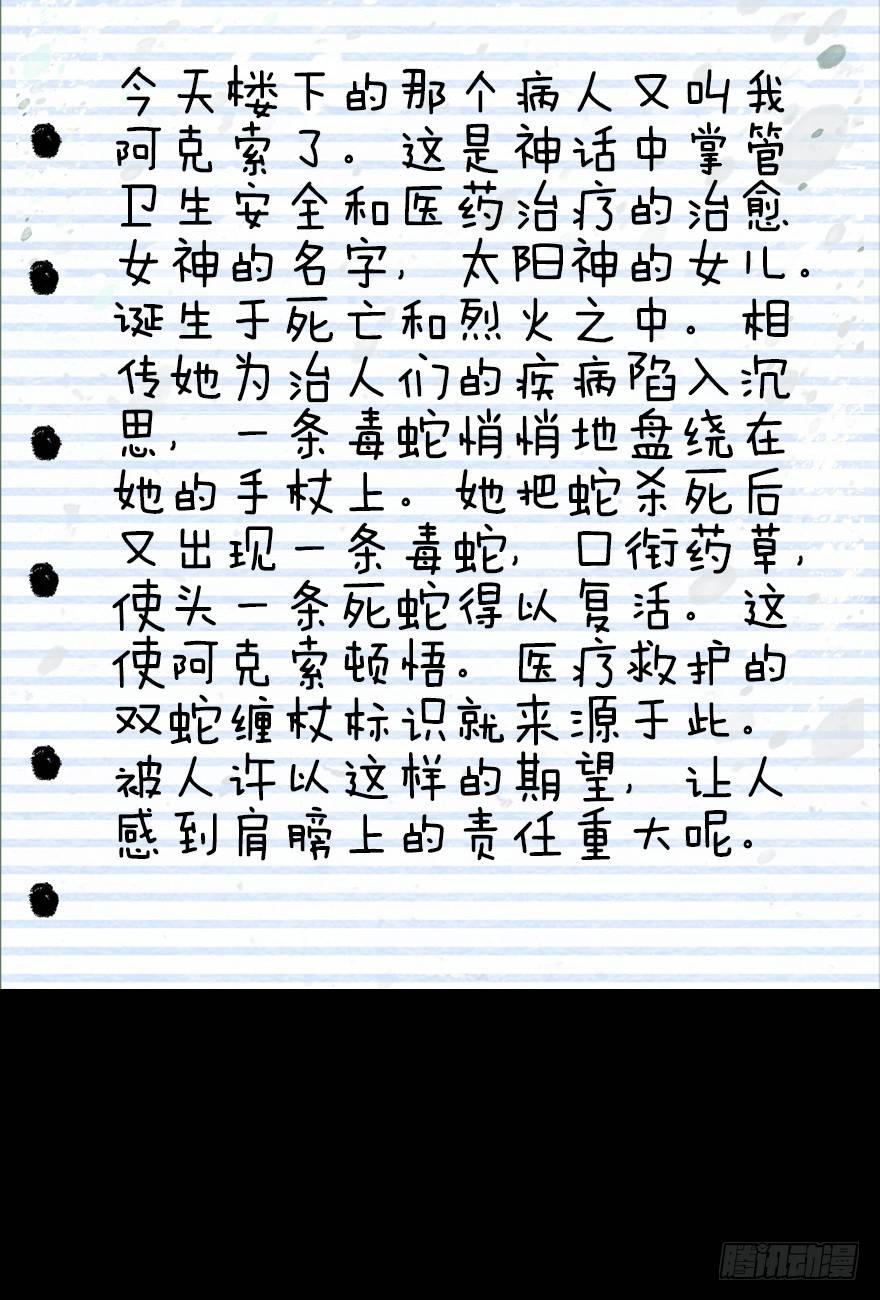 今天楼下的那个病人又叫我
阿克索了。这是神话中掌管
卫生安全和医药治疗的治愈
女神的名字，太阳神的女儿。
诞生于死亡和烈火之中。相
传她为治人们的疾病陷入沉
思，一条毒蛇悄悄地盘绕在
她的手杖上。她把蛇杀死后
又出现一条毒蛇，口衔药草，
使头一条死蛇得以复活。这
使阿克索顿悟。医疗救护的
双蛇缠杖标识就来源于此。
被人许以这样的期望，让人
感到肩膀上的责任重大呢。
腾讯动漫